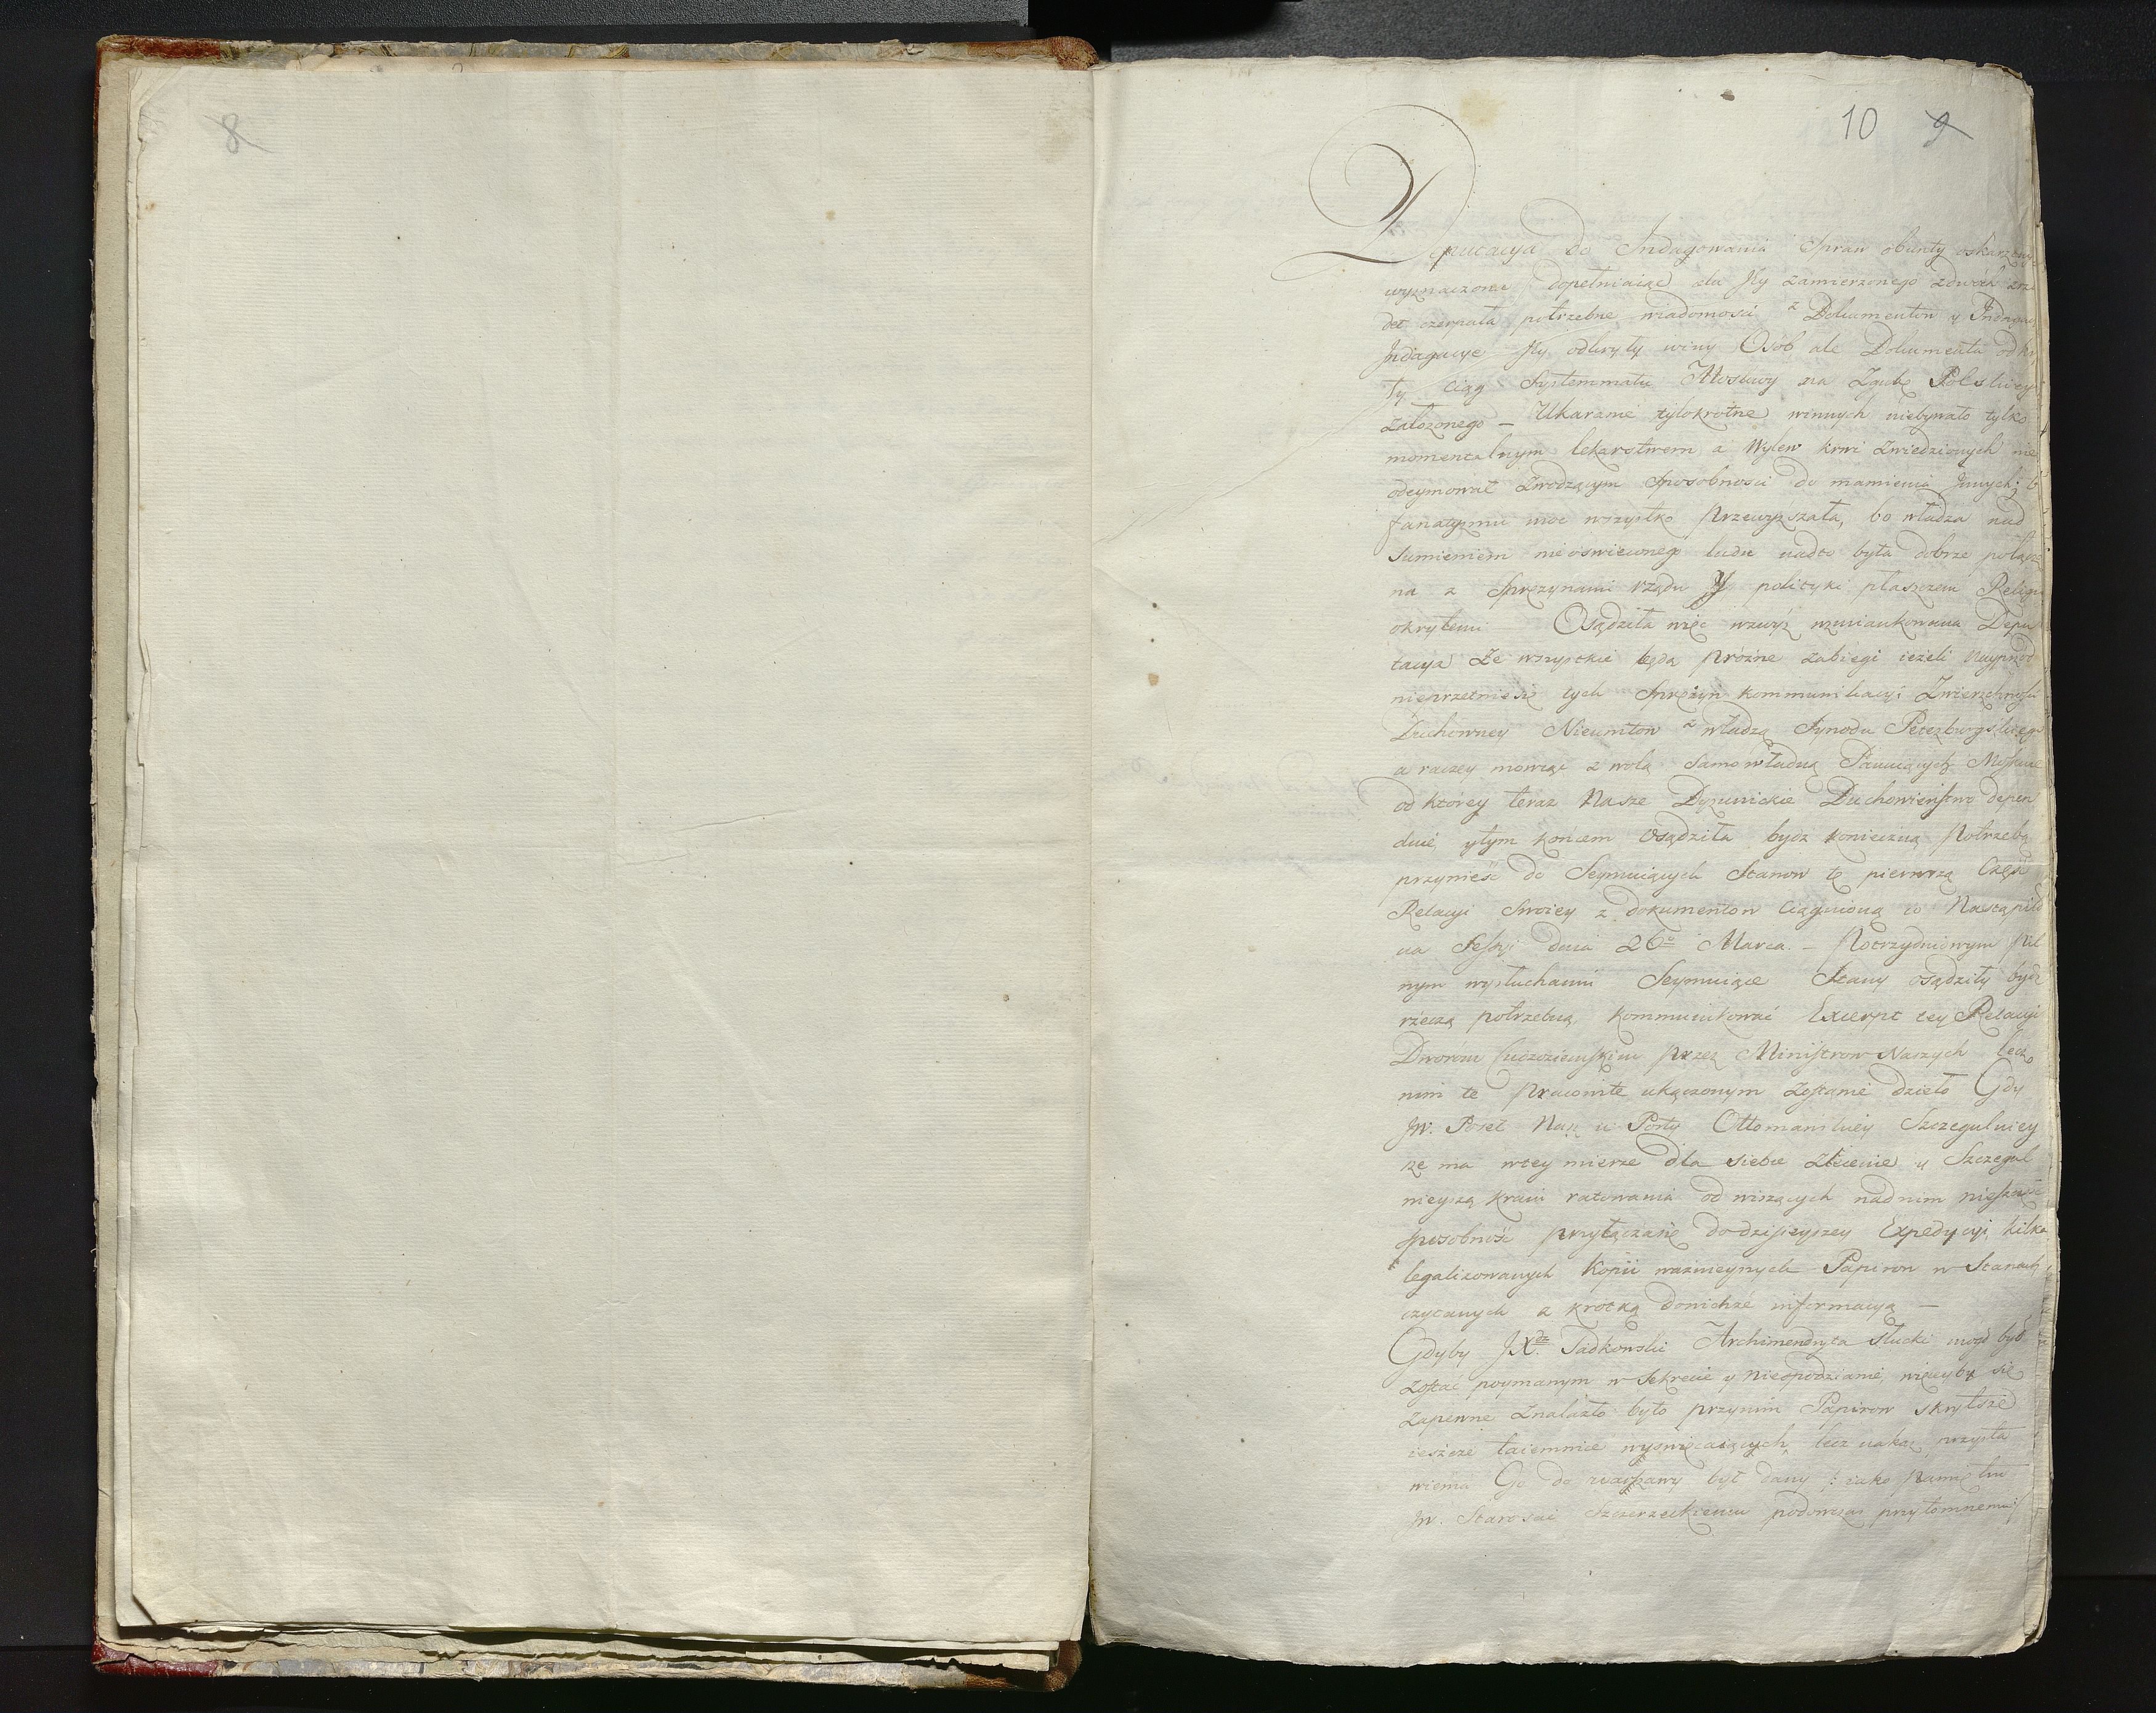 8
10 9
Deputacya do Indagowania Spraw obunty oskarżonych
wyznaczona dopełniaiąc celu Jey zamierzonego zdwóch źrzó
deł czerpała potrzebne wiadomości z Dokumentow y Indagacyi
Indagacye Jey odkryły winy Osób ale Dokumenta odkry
ły ciąg Systemmatu Moskwy na Zgubę Polskiey
założonego – Ukaranie tylokrotne winnych niebywało tylko
momentalnym lekarstwem a Wylew krwi Zwiedzionych nie
odeymował Zwodzącym sposobności do mamienia Innych; b
fanatyzmu moc wszystko przewyższała, bo władza nad
Sumieniem nieoświeconego ludu nadto była dobrze połączo
na z Sprężynami rządu y polityki płaszczem Religii
okrytemi Osądziła więc wzwyż wzmiankowana Depu
tacya Że wszystkie będą próżne zabiegi ieżeli nayprzód
nieprzetnie się tych Sprężyn kommunikacyi Zwierzchności
Duchowney Nieunitow z władzą Synodu Peterzburgskiego
a raczey mowiąc z wolą samowładną Panuiących Moskwie
od którey teraz Nasze Dyzunickie Duchowieństwo depen
duie, ytym końcem osądziła bydz konieczną potrzebą
przynieść do Seymuiących Stanow tę pierwszą Część
Relacyi Swoiey z dokumentow Ciągnioną co Nastąpiło
na Sessyi dnia 26º Marca. – Potrzydniowym pil
nym wysłuchaniu Seymuiące Stany osądziły bydz
rzeczą potrzebną kommunikować Excerpt tey Relacyi
Dworom Cudzoziemskim przez Ministrow Naszych lecz
nim te pracowite ukączonym zostanie dzieło Gdy
JW. Poseł Nasz u Porty Ottomanskiey Szczegulniey
sze ma wtey mierze dla siebie zlecenie y Szczegul
nieyszą kraiu ratowania od wiszących nadnim nieszczęść
sposobność przyłączasię dodzisieyszey Expedycyi kilka
legalizowanych kopii ważnieyszych Papierow w Stanach
czytanych z krótką donichże informacyą –
Gdyby JXdz Sadkowski Archimendryta Słucki mógł był
zostać poymanym w sekrecie y niespodzianie, więcey by się
zapewne znalazło było przynim Papierow skrytsze
ieszcze taiemnice wyświecaiących, lecz nakaz przysta
wienia Go do Warszawy był dany /: iako pamiętno
JW. Staroście Szczerzeckiemu podówczas przytomnemu :/